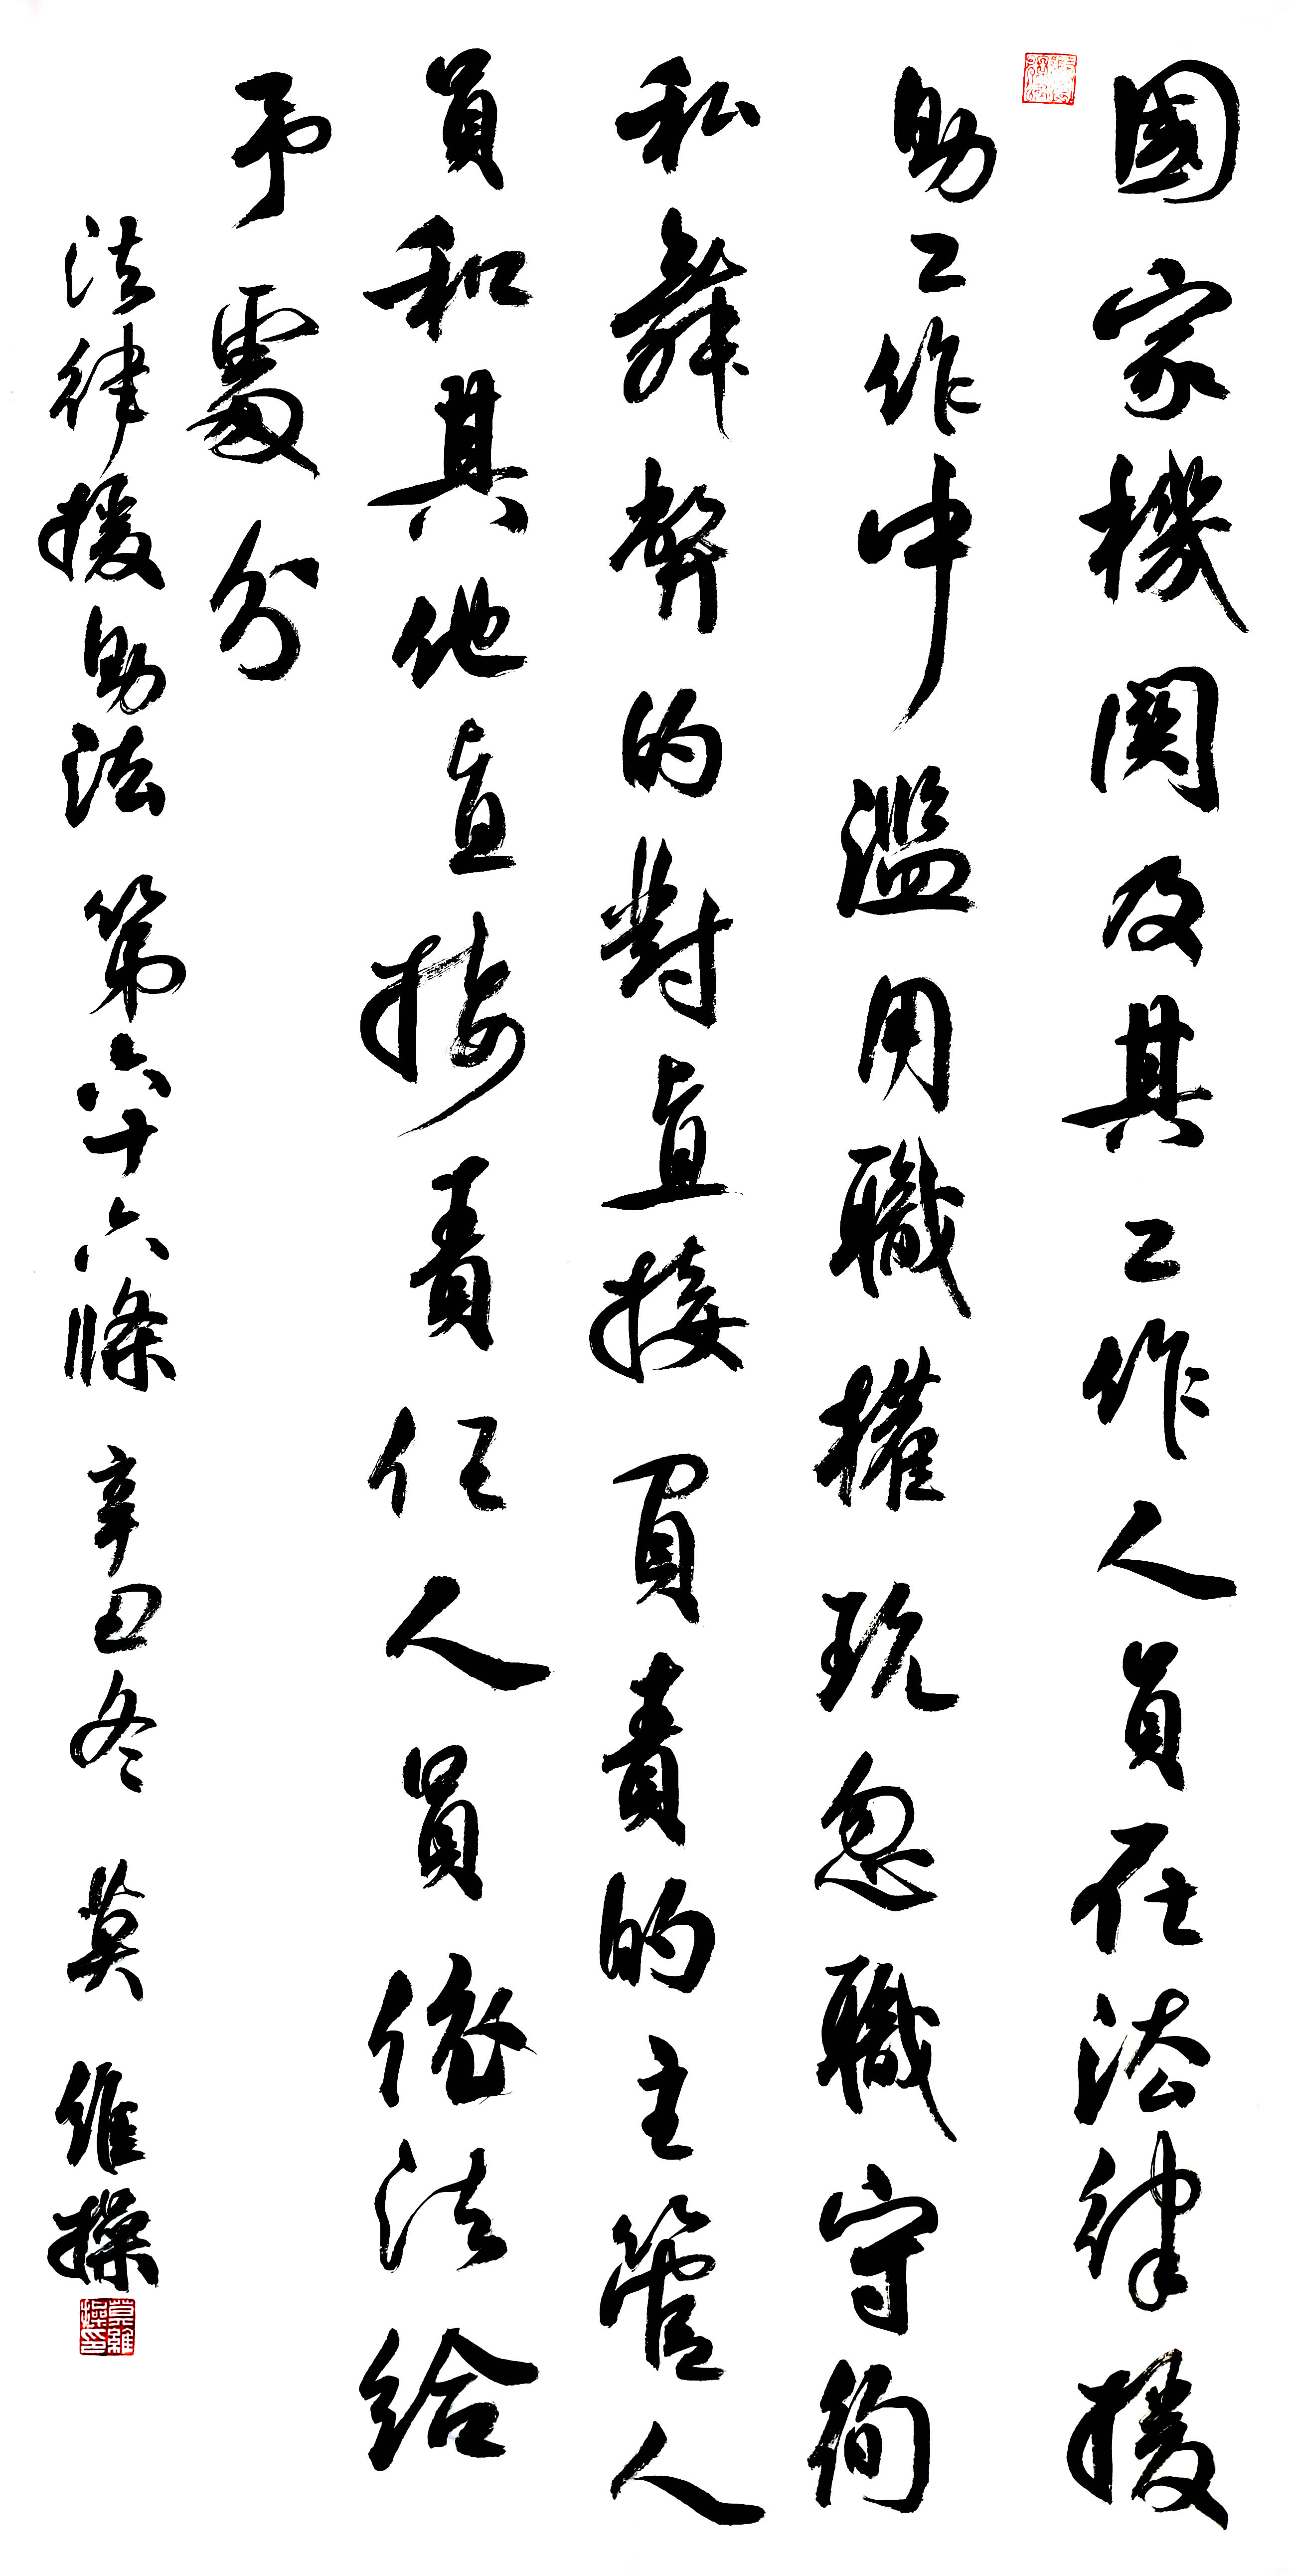 國家機関及其工作人員在法律援
助工作中濫用職權玩忽職守徇
私舞弊的對直接負責的主管人
員和其他直接責任人員依法給
予處分
法律援助法 第六十六條 辛丑冬 莫維操
莫維操印